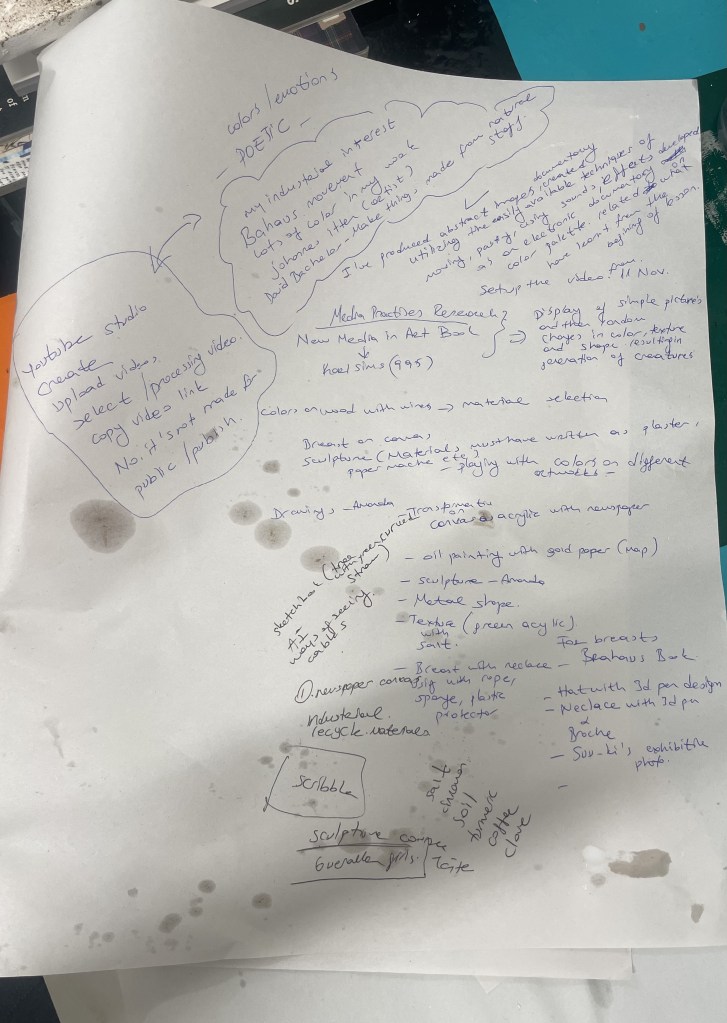 colors/emotions
- POETIC -
my industerial interest
Bahaus movement
Lots of color in my work
Johannes Itten (artist)
David Bachelor - Make things made from natural
stops.
documentary
I've produced abstract images, created
utilizing the easily available techniques of
moving, pasting, using sounds, effects developed
as an electronic documentary
color palette. related to what
have learnt from the
begining of lesson.
Setup the video. from 11 Nov.
Youtube studio
Create
Upload videos,
select/processing video.
copy video link
No. it's not made for
public/publish.
Media Practises Research?
New Media in Art Book
Karl Sims (995)
Display of simple pictures
and then random
changes in color, texture
and shape resulting in
generation of creatures
Colors on wood with wires → material selection
Breast on canvas
sculpture (Materials must have written as plaster,
paper mache etc)
- playing with colors on different
artworks -
Drawings - Amanda - Transformation
on
canvas acrylic with newspaper
sketchbook (tree
with green curved
straw)
AI
ways of seeing
cables
- oil painting with gold paper (map)
- sculpture - Amanda
- Metal shape.
- Texture (green acylic)
with
salt.
For breasts
- Breast with neclace - Brahaus Book
① newspaper canvas
with rope,
sponge, plastic
protector
industerial
recycle materials
- Hat with 3d pen design
- Neclace with 3d pen
&
Broche
- Suu-ki's exhibition
photo.
-
scribble
salt
cinnamon
soil
turmeric
coffee
clove
sculpture
Gueralla girls. Tate